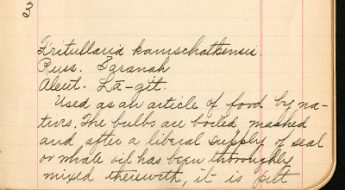 3
Fritullaria kamschatkensis
Russ. Saranah
Aleut. Lā-git.
Used as an article of food by na-
tives. The bulbs are boiled, mashed
and after a liberal supply of seal
or whale oil has been thoroughly
mixed therewith, it is felt